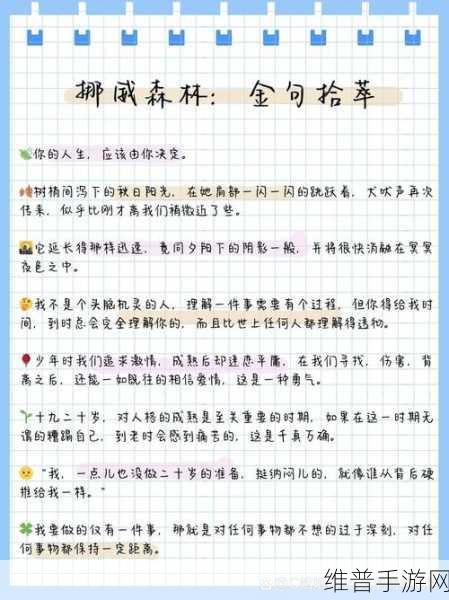 挪威森林：金句拾萃
你的人生，应该由你决定。
树梢间泻下的秋日阳光，在她肩部一闪一闪的跳跃着，犬吠声再次
传来，似乎比刚才离我们稍微近了些。
它延长得那样迅速，竟同夕阳下的阴影一般，并将很快消融在冥冥
夜色之中。
我不是个头脑机灵的人，理解一件事需要有个过程，但你得给我时
间，到时总会完全理解你的，而且比世上任何人都理解得透彻。
少年时我们追求激情，成熟后却迷恋平庸，在我们寻找，伤害，背
离之后，还能一如既往的相信爱情，这是一种勇气。
十九二十岁，对人格的成熟是至关重要的时期，如果在这一时期无
谓的糟蹋自己，到老时会感到痛苦的，这是千真万确。
“我，一点儿也没做二十岁的准备，挺纳闷儿的，就像谁从背后硬
推给我一样。”
我要做的仅有一件事，那就是对任何事物都不想的过于深刻，对任
何事物都保持一定距离。
维普手游网